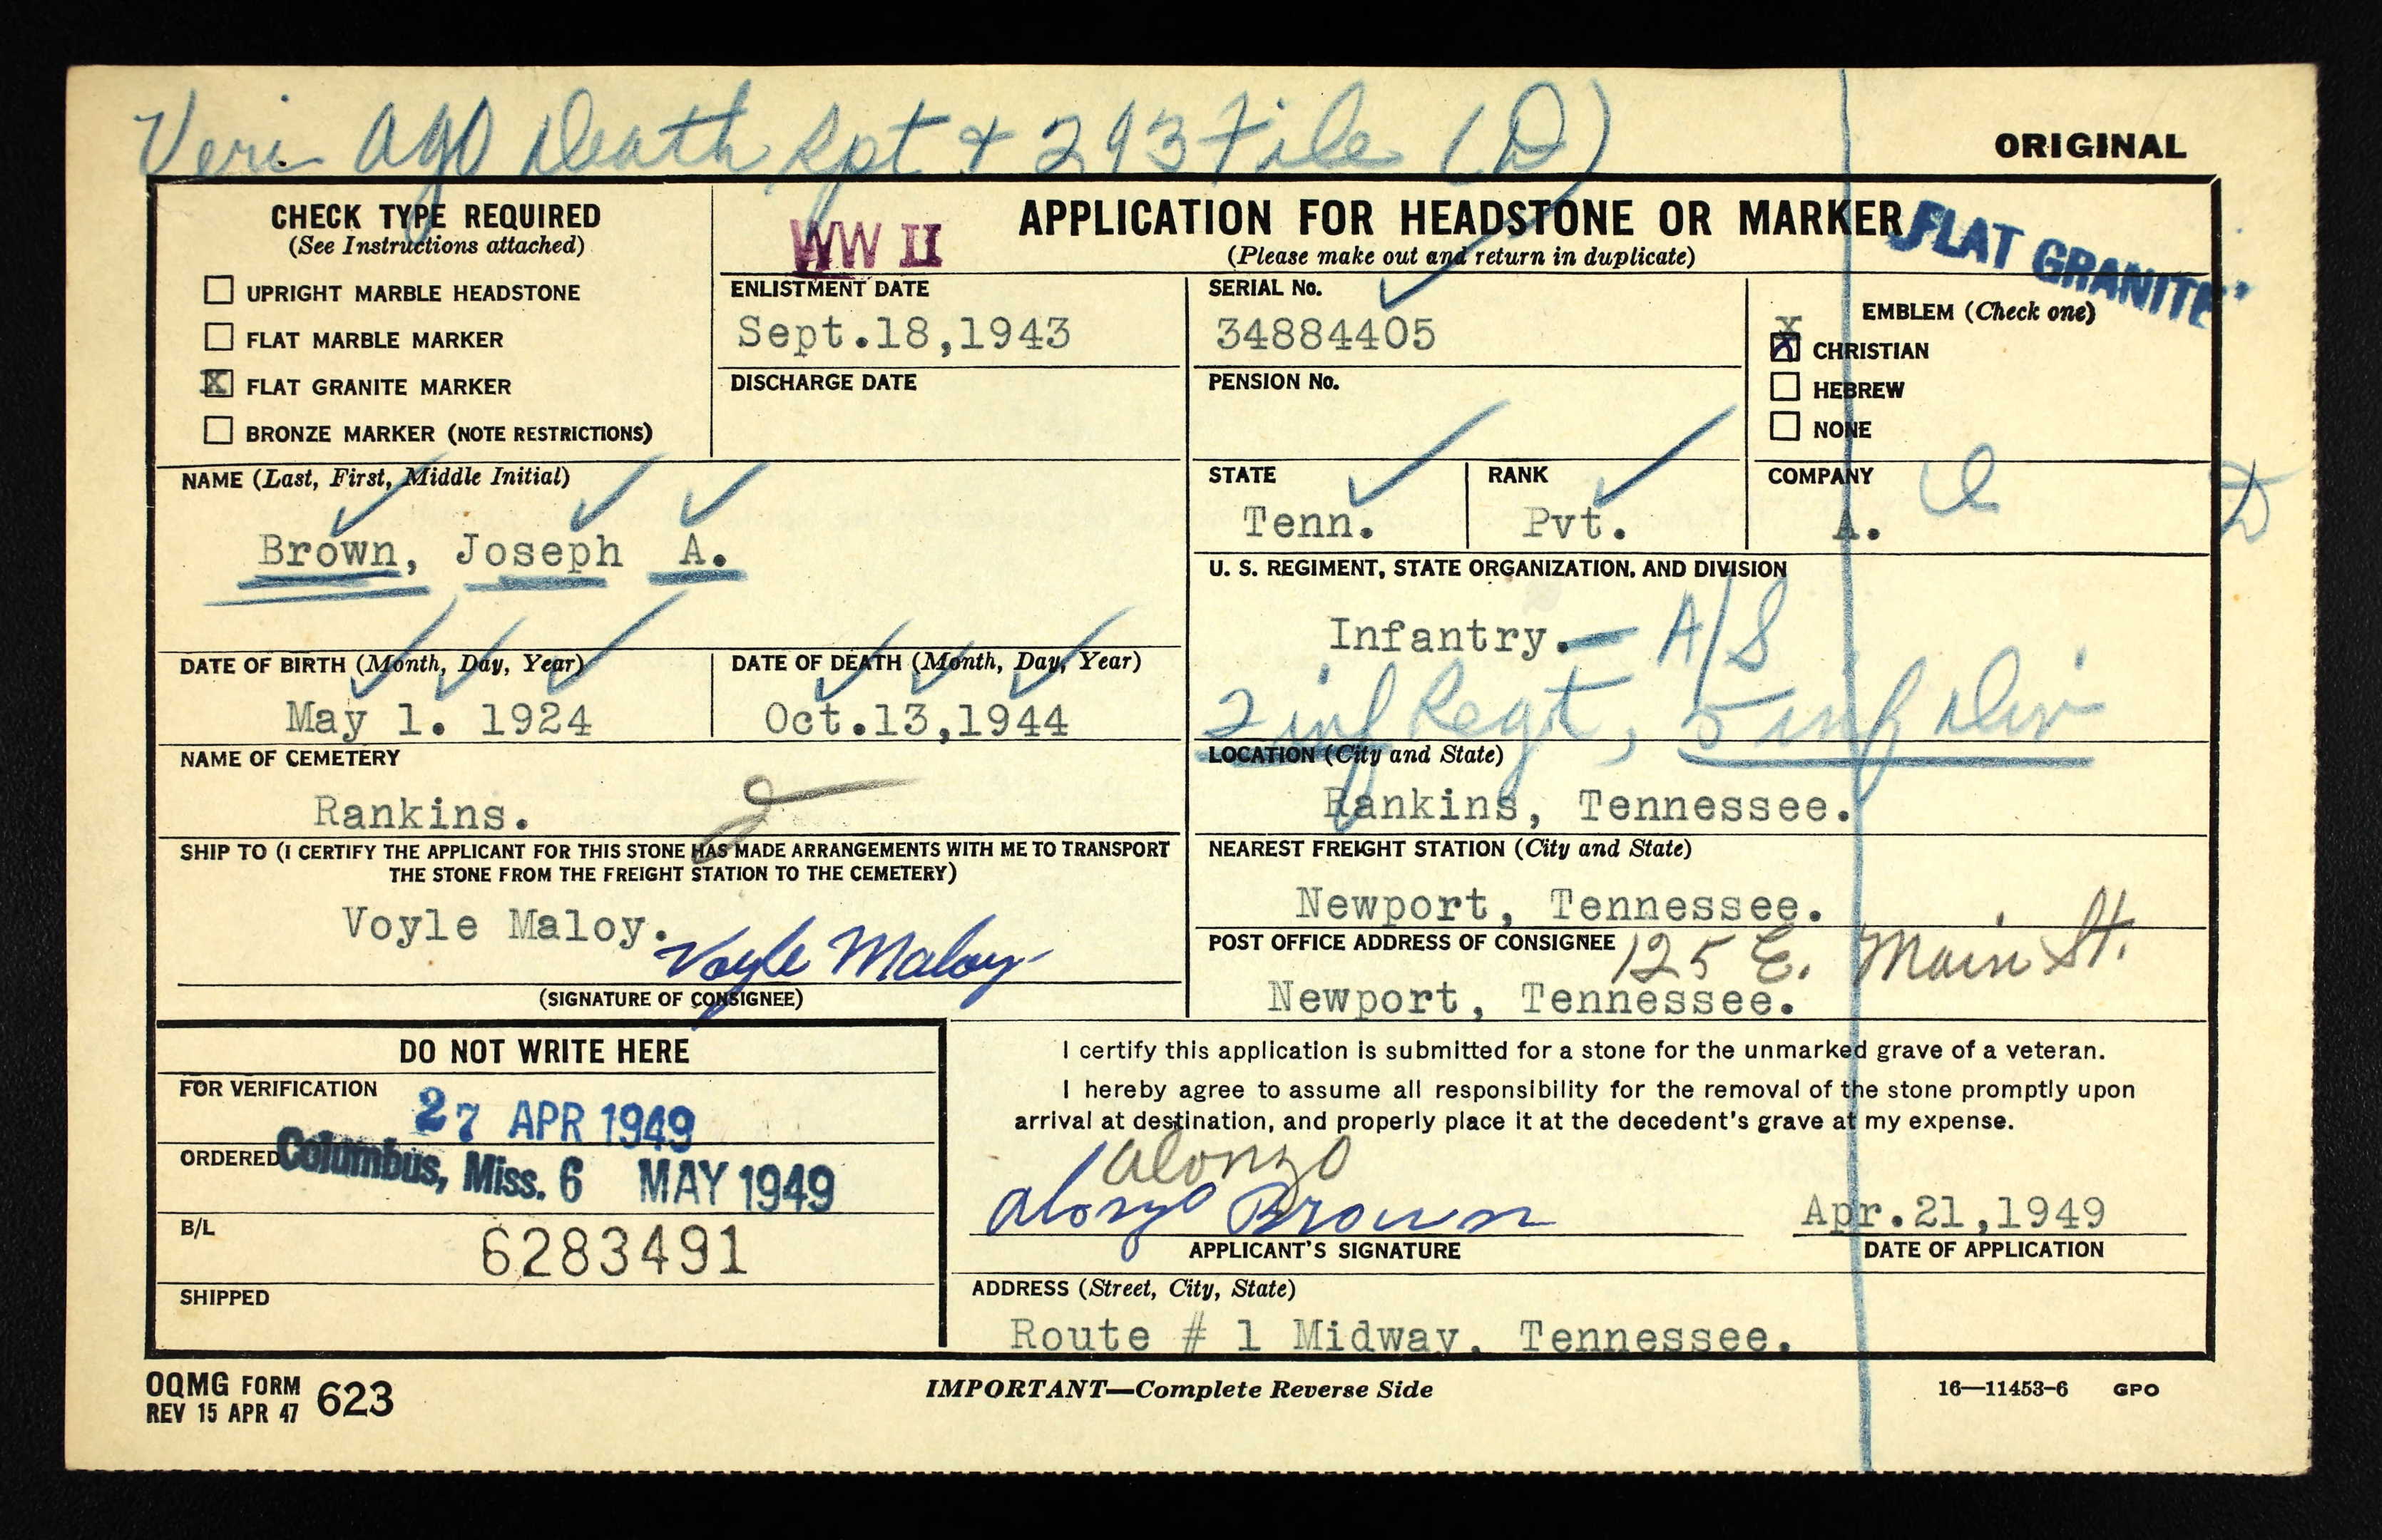 Veri AGO Death Rpt + 293 File (D)
ORIGINAL
CHECK TYPE REQUIRED
(See Instructions attached)
UPRIGHT MARBLE HEADSTONE
FLAT MARBLE MARKER
X FLAT GRANITE MARKER
BRONZE MARKER (NOTE RESTRICTIONS)
WW II
APPLICATION FOR HEADSTONE OR MARKER
(Please make out and return in duplicate)
FLAT GRANITE
ENLISTMENT DATE
Sept.18,1943
DISCHARGE DATE
SERIAL No.
34884405
PENSION No.
EMBLEM (Check one)
X CHRISTIAN
HEBREW
NONE
NAME (Last, First, Middle Initial)
Brown, Joseph A.
STATE
Tenn.
RANK
Pvt.
COMPANY
A.
D
U. S. REGIMENT, STATE ORGANIZATION, AND DIVISION
Infantry. — A/S
2 inf Regt, 5 inf Div
DATE OF BIRTH (Month, Day, Year)
May 1. 1924
DATE OF DEATH (Month, Day, Year)
Oct.13,1944
NAME OF CEMETERY
Rankins.
LOCATION (City and State)
Rankins, Tennessee.
SHIP TO (I CERTIFY THE APPLICANT FOR THIS STONE HAS MADE ARRANGEMENTS WITH ME TO TRANSPORT
THE STONE FROM THE FREIGHT STATION TO THE CEMETERY)
Voyle Maloy. Voyle Maloy
(SIGNATURE OF CONSIGNEE)
NEAREST FREIGHT STATION (City and State)
Newport, Tennessee.
POST OFFICE ADDRESS OF CONSIGNEE 125 E. Main St.
Newport, Tennessee.
DO NOT WRITE HERE
FOR VERIFICATION
27 APR 1949
ORDERED Columbus, Miss. 6 MAY 1949
B/L
6283491
SHIPPED
I certify this application is submitted for a stone for the unmarked grave of a veteran.
I hereby agree to assume all responsibility for the removal of the stone promptly upon
arrival at destination, and properly place it at the decedent's grave at my expense.
Alonzo
Alonzo Brown
APPLICANT'S SIGNATURE
Apr.21,1949
DATE OF APPLICATION
ADDRESS (Street, City, State)
Route # 1 Midway, Tennessee.
OQMG FORM 623
REV 15 APR 47
IMPORTANT—Complete Reverse Side
16—11453-6 GPO